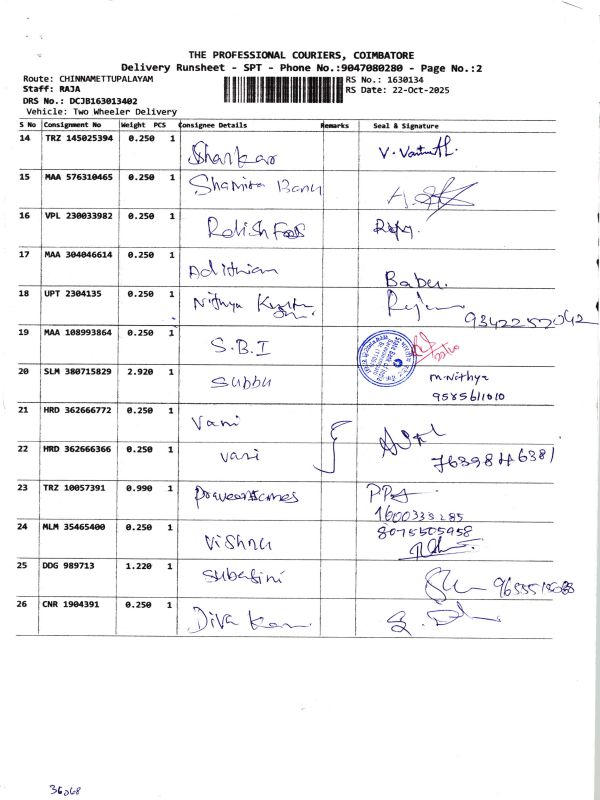 THE PROFESSIONAL COURIERS, COIMBATORE
Delivery Runsheet - SPT - Phone No.:9047080280 - Page No.:2
Route: CHINNAMETTUPALAYAM RS No.: 1630134
Staff: RAJA RS Date: 22-Oct-2025
DRS No.: DCJB163013402
Vehicle: Two Wheeler Delivery
S No Consignment No Weight PCS Consignee Details Remarks Seal & Signature
14 TRZ 145025394 0.250 1 Shankar
15 MAA 576310465 0.250 1 Shamira Banu
16 VPL 230033982 0.250 1
17 MAA 304046614 0.250 1 Adithian Baber.
18 UPT 2304135 0.250 1 Nithya
19 MAA 108993864 0.250 1 S.B.I
20 SLM 380715829 2.920 1 Subbu M.Nithya
9585611010
21 HRD 362666772 0.250 1 Vani
22 HRD 362666366 0.250 1 Vani 7639846381
23 TRZ 10057391 0.990 1
24 MLM 35465400 0.250 1 Vishnu 8075505958
25 DDG 989713 1.220 1 Subasini
26 CNR 1904391 0.250 1 Diva Kar
36068